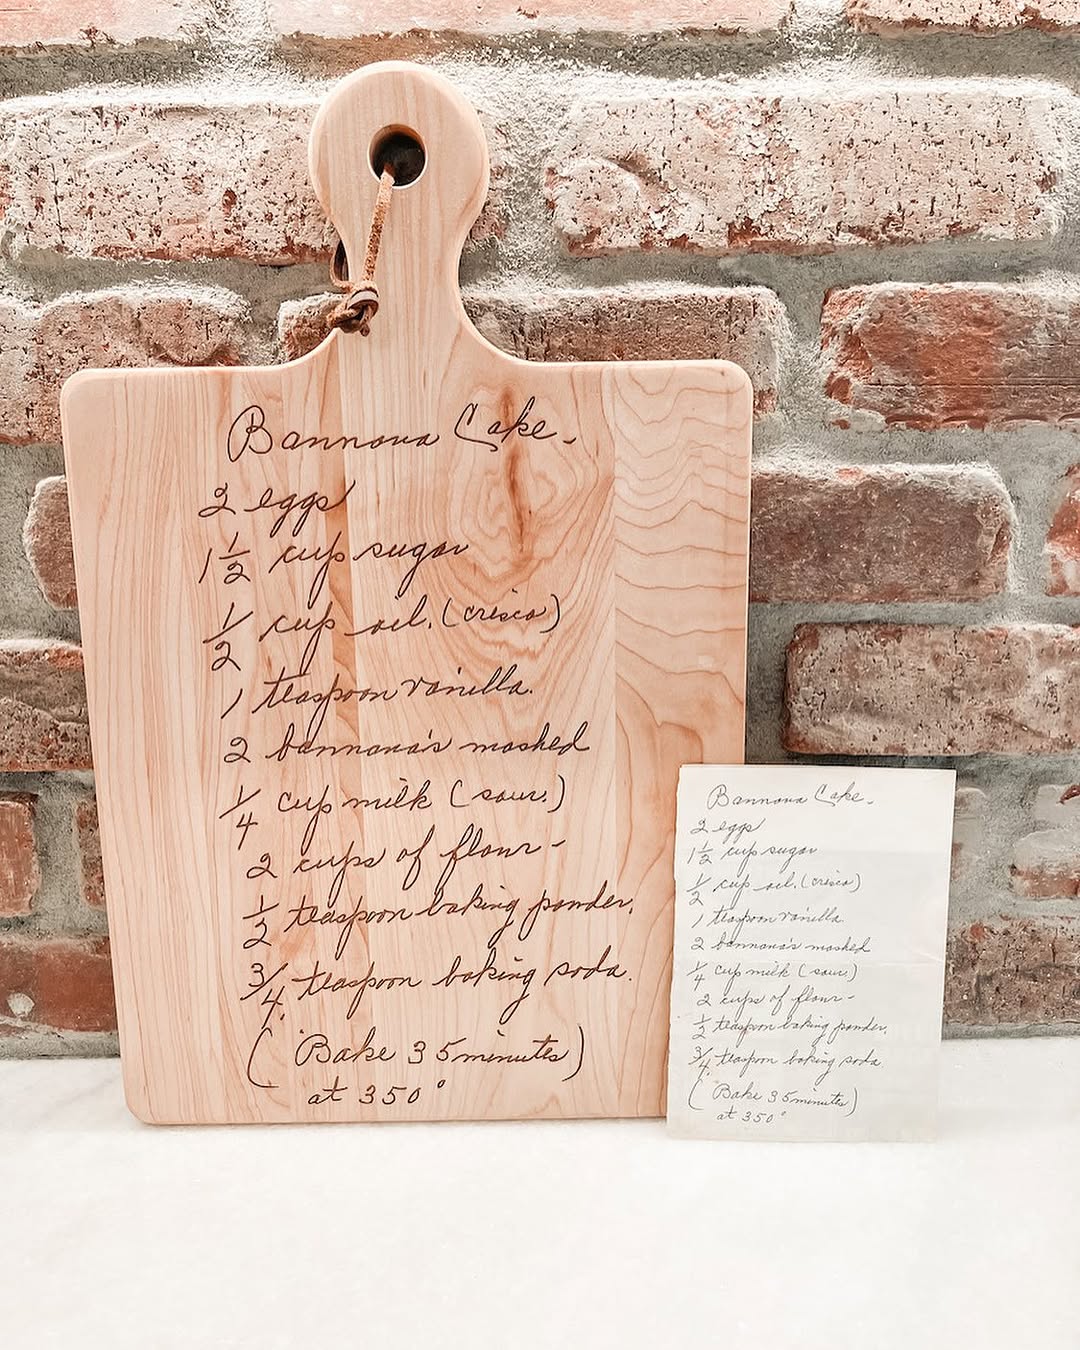 Bannana Cake.
2 eggs
1 1/2 cup sugar
1/2 cup oil. (crisco)
1 teaspoon vanilla.
2 bannana's mashed
1/4 cup milk (sour.)
2 cups of flour -
1/2 teaspoon baking powder.
3/4. teaspoon baking soda.
(Bake 35 minutes)
at 350°
Bannana Cake.
2 eggs
1 1/2 cup sugar
1/2 cup oil. (crisco)
1 teaspoon vanilla.
2 bannana's mashed
1/4 cup milk (sour.)
2 cups of flour -
1/2 teaspoon baking powder.
3/4. teaspoon baking soda.
(Bake 35 minutes)
at 350°